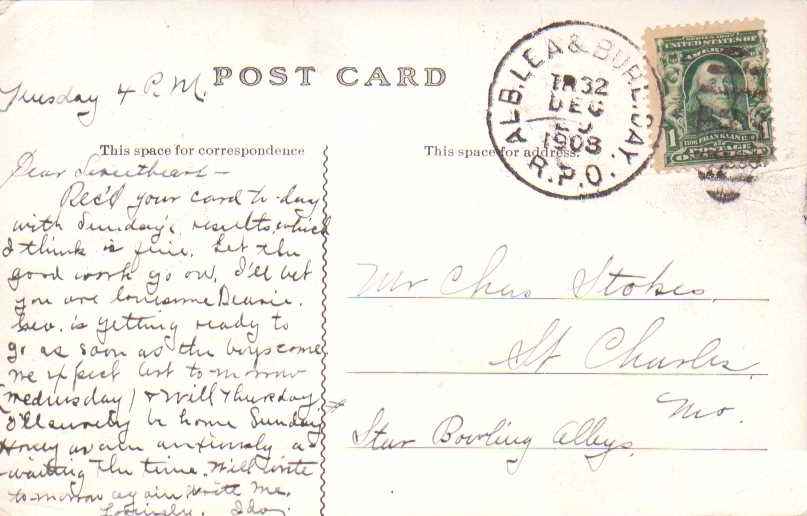 POST CARD
Tuesday 4 P.M.
This space for correspondence
Dear Sweetheart —
Rec'd your card to-day
with Sunday's results, which
I think is fine. Let the
good work go on. I'll bet
you are lonesome Dearie.
Geo. is getting ready to
go as soon as the boys come,
we expect Art to-morrow
(Wednesday) & Will Thursday.
I'll surely be home Sunday
Honey anxiously a-
waiting the time. Will write
to-morrow again Write Me.
Lovingly, Ida.
This space for address.
ALB. LEA & BURL. DAY.
TR 32
DEC
1908
R.P.O.
UNITED STATES OF AMERICA
1 FRANKLIN 1
POSTAGE
ONE CENT
Mr Chas Stokes.
St Charles.
Mo.
Star Bowling Alleys.